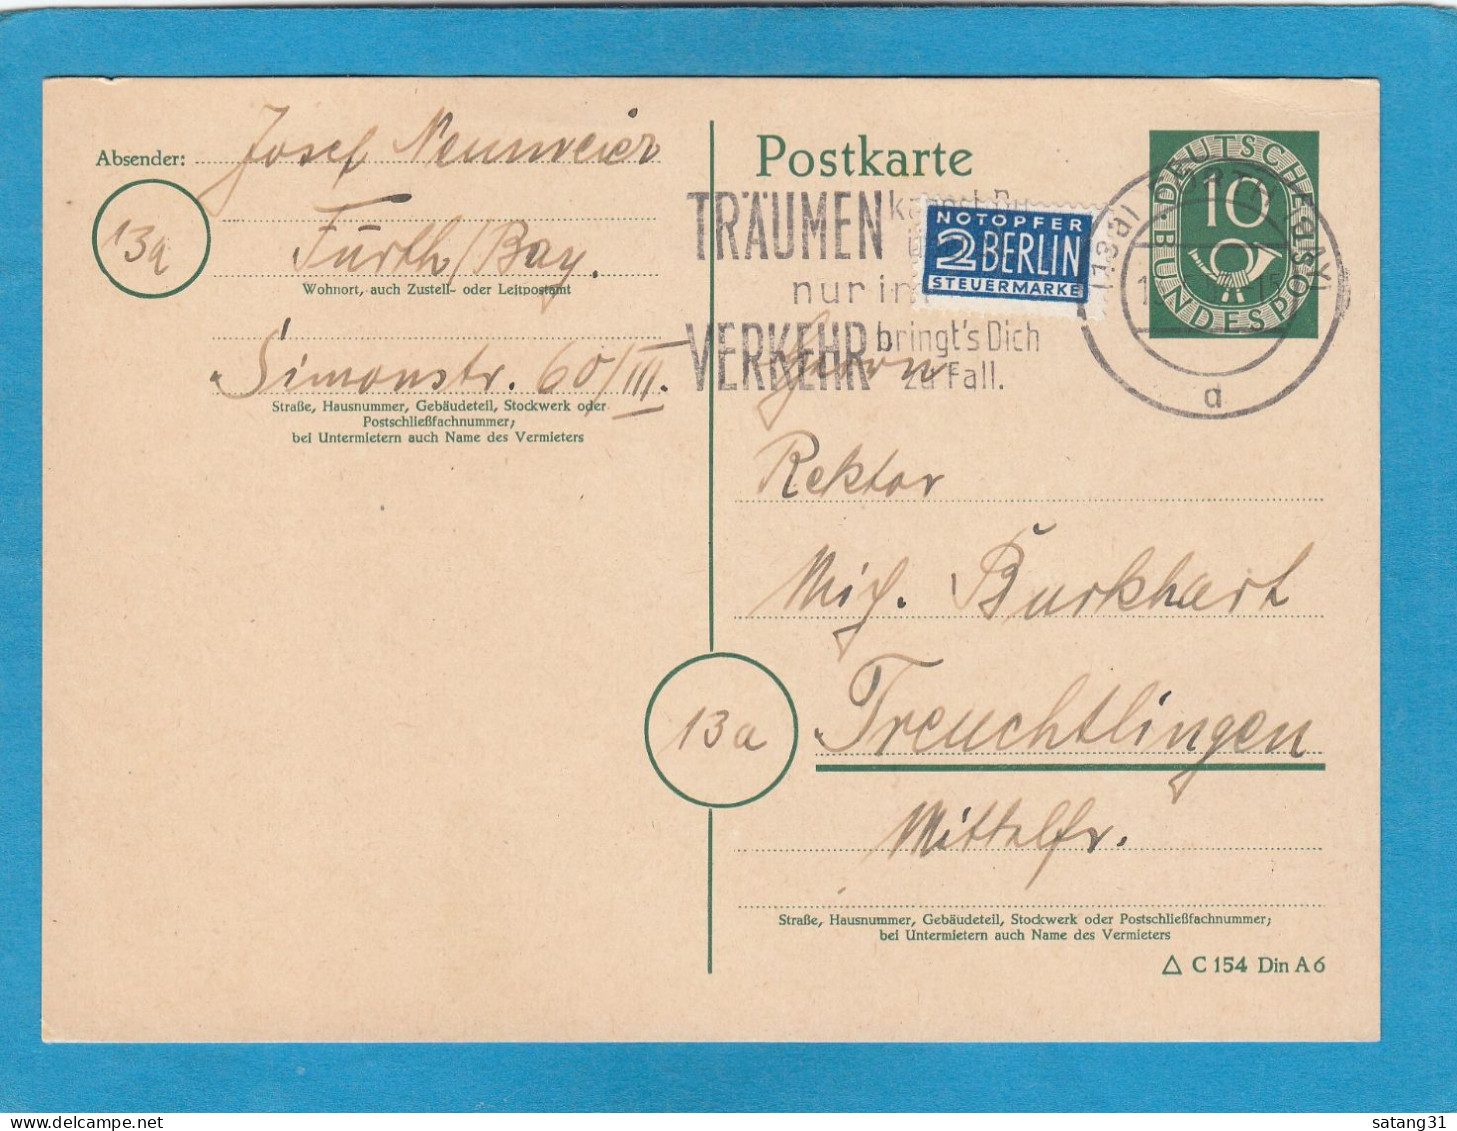 Absender: Josef Neumeier
13a
Fürth/Bay.
Wohnort, auch Zustell- oder Leitpostamt
Simonstr. 60/III.
Straße, Hausnummer, Gebäudeteil, Stockwerk oder
Postschließfachnummer;
bei Untermietern auch Name des Vermieters
Postkarte
TRÄUMEN kannst Du
nur im
VERKEHR bringt's Dich
zu Fall.
NOTOPFER
2 BERLIN
STEUERMARKE
DEUTSCHE
10
BUNDESPOST
(13a) FÜRTH (BAY)
a
Herrn
Rektor
Mich. Burkhart
13a
Treuchtlingen
Mittelfr.
Straße, Hausnummer, Gebäudeteil, Stockwerk oder Postschließfachnummer;
bei Untermietern auch Name des Vermieters
△ C 154 Din A 6
satang31